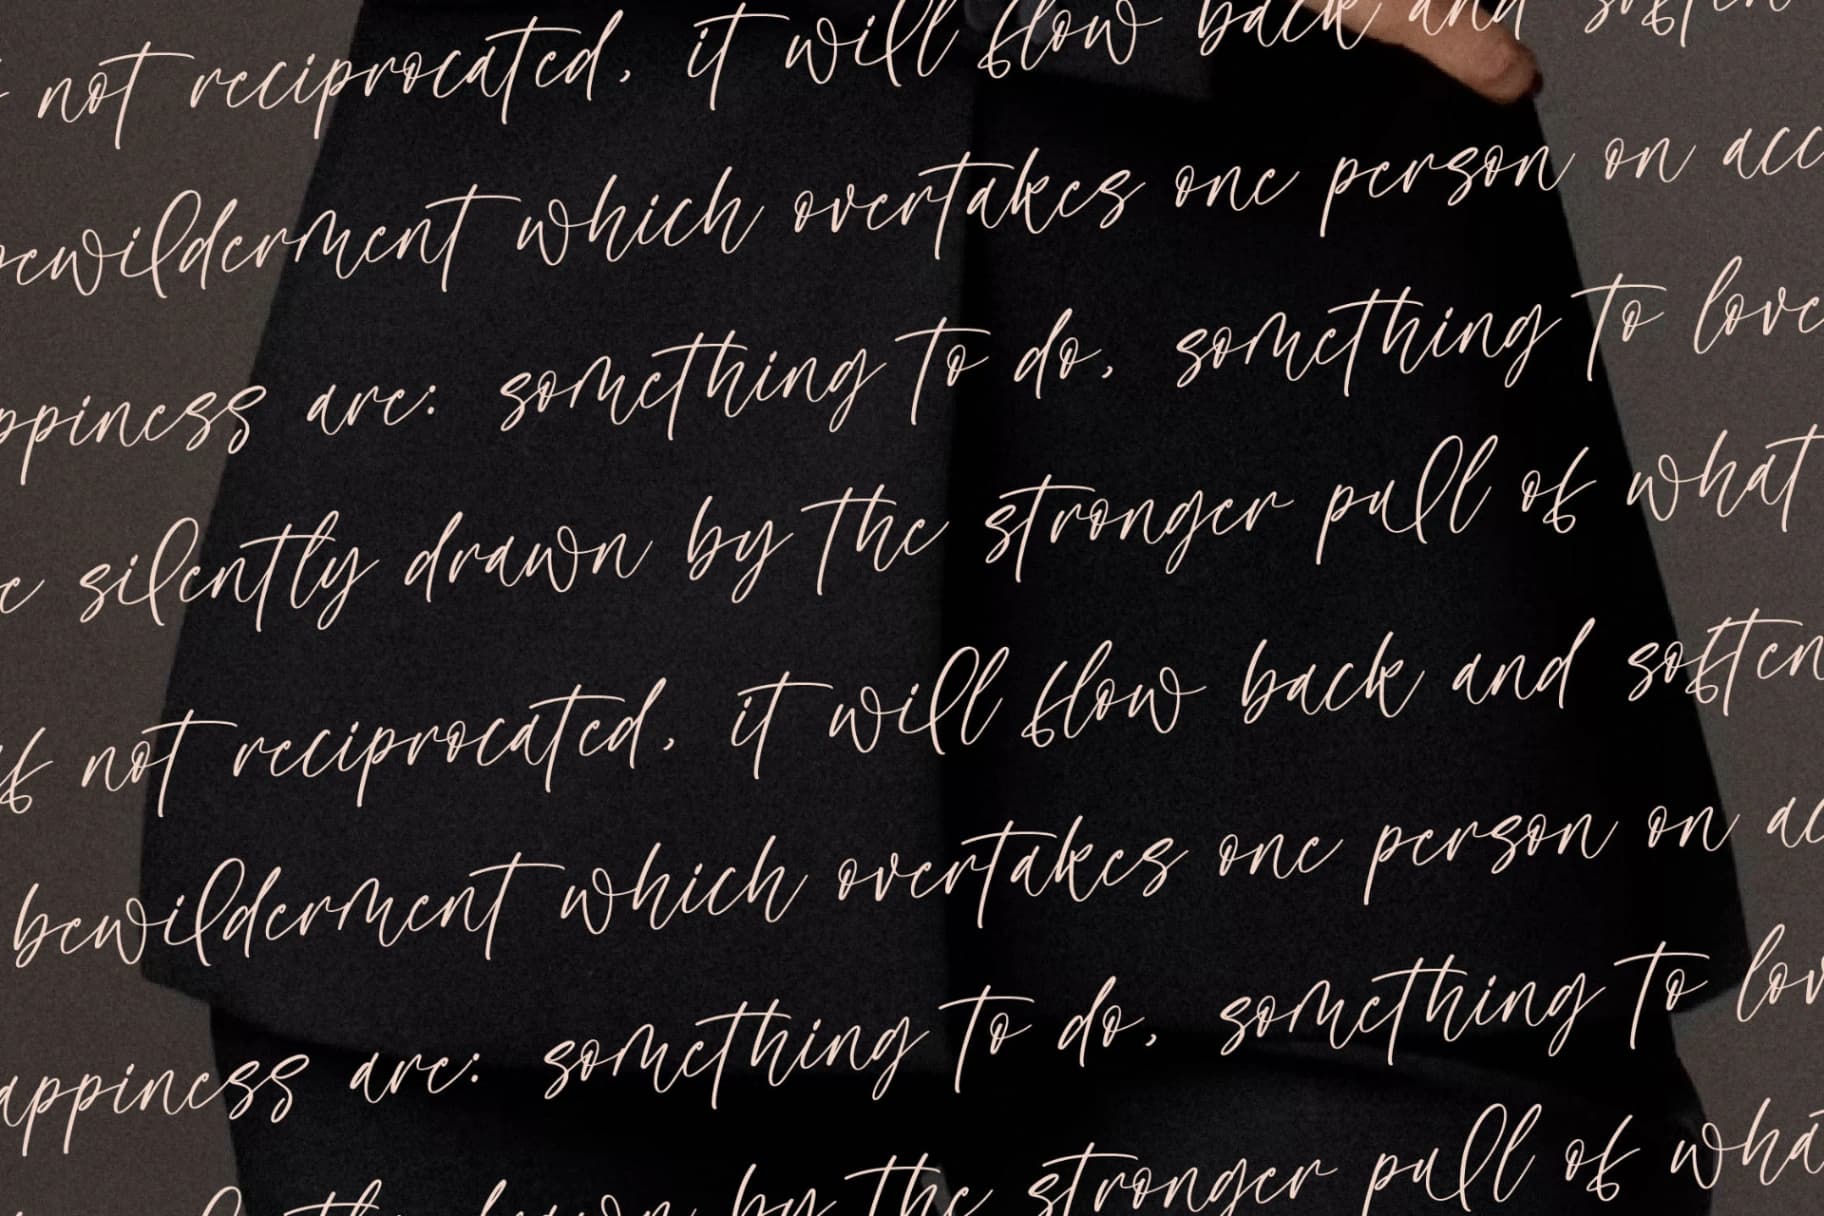 not reciprocated, it will flow back and soften
bewilderment which overtakes one person on acc
ppiness are: something to do, something to love
e silently drawn by the stronger pull of what
if not reciprocated, it will flow back and soften
bewilderment which overtakes one person on ac
appiness are: something to do, something to lov
by the stronger pull of wha